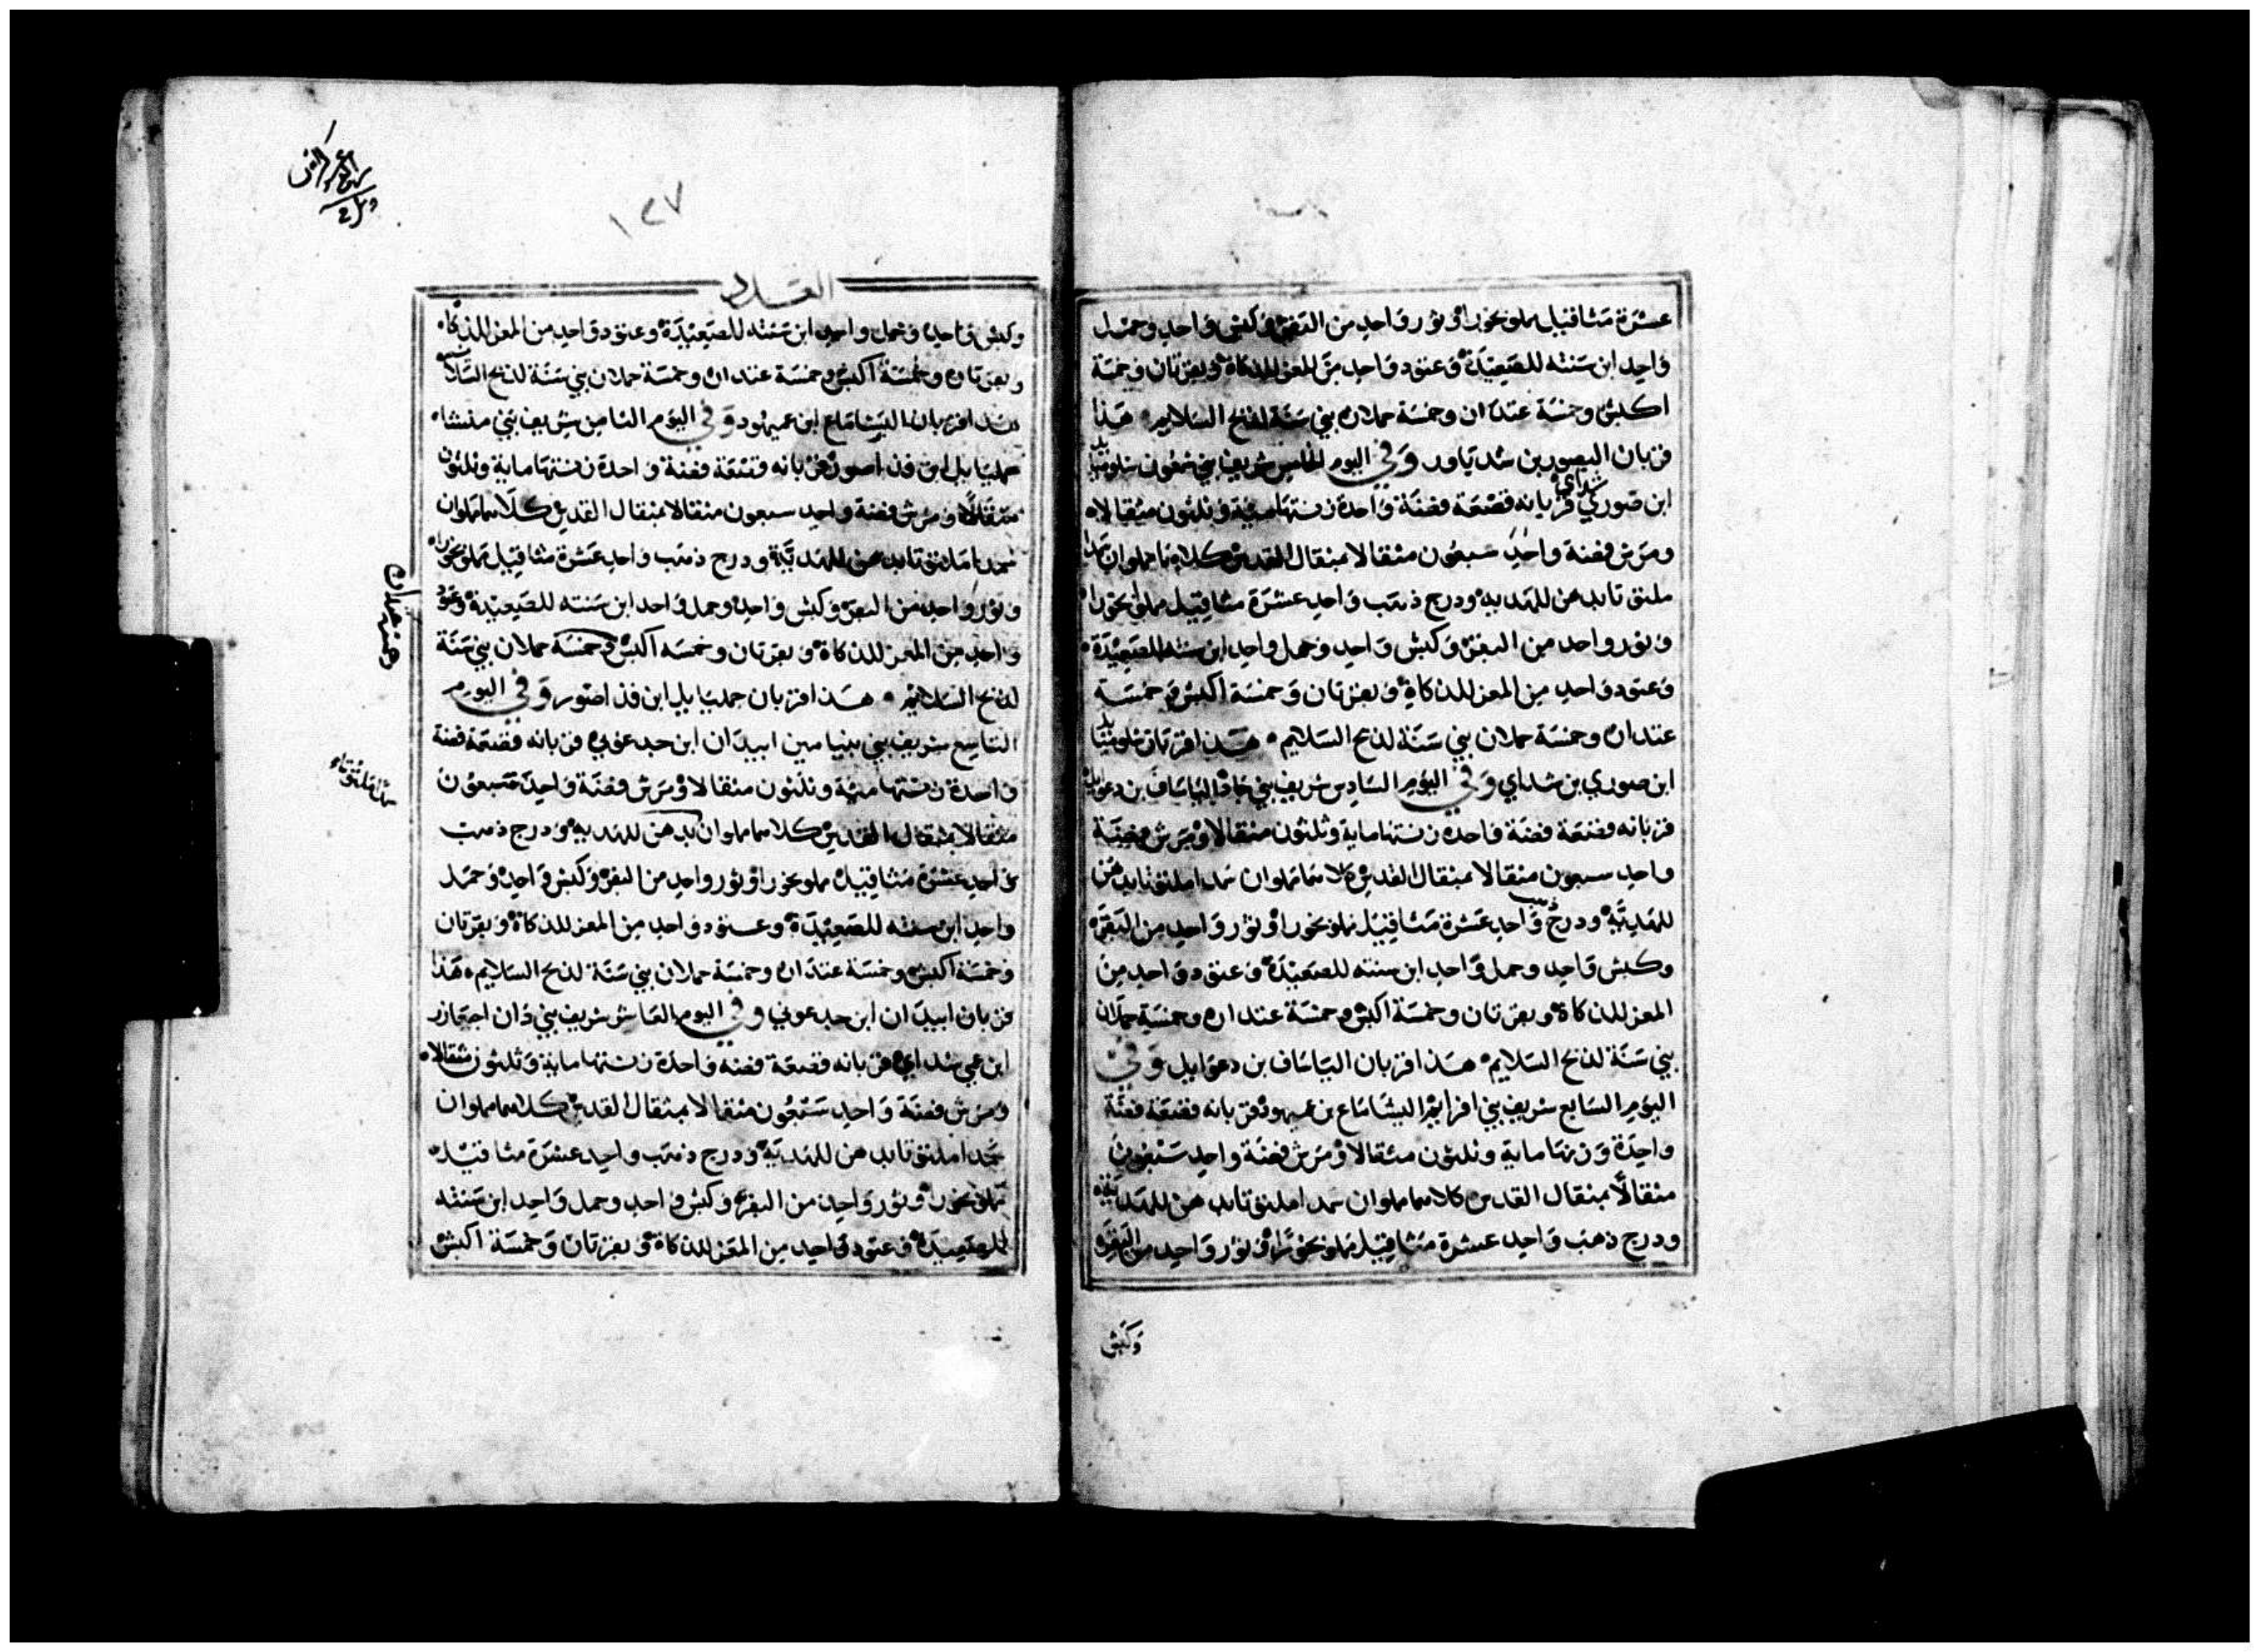 عشرة مثاقيل مملو بخورا وثور واحد من البقر وكبش واحد وحمل
واحد ابن سنته للصعيدة وعتود واحد من المعز للذكاة وبقرتان وخمسة
اكبش وخمسة عتدان وخمسة حملان بني سنة لذبح السلايم هذا
قربان اليصور بن شدياور وفي اليوم الخامس شريف بني شمعون شلوميايل
ابن صوري شداي قربانه قصعة فضة واحدة زنتها مئية وثلثون مثقالا
ومرش فضة واحد سبعون مثقالا بمثقال القدس كلاهما مملوان سمدا
ملتوتا بدهن للهدية ودرج ذهب واحد عشرة مثاقيل مملو بخورا
وثور واحد من البقر وكبش واحد وحمل واحد ابن سنته للصعيدة
وعتود واحد من المعز للذكاة وبقرتان وخمسة اكبش وخمسة
عتدان وخمسة حملان بني سنة لذبح السلايم هذا قربان شلوميايل
ابن صوري بن شداي وفي اليوم السادس شريف بني جاد الياساف بن دعوايل
قربانه قصعة فضة واحدة زنتها ماية وثلثون مثقالا ومرش فضة
واحد سبعون مثقالا بمثقال القدس كلاهما مملوان سمدا ملتوتا بدهن
للهدية ودرج ذهب واحد عشرة مثاقيل مملو بخورا وثور واحد من البقر
وكبش واحد وحمل واحد ابن سنته للصعيدة وعتود واحد من
المعز للذكاة وبقرتان وخمسة اكبش وخمسة عتدان وخمسة حملان
بني سنة لذبح السلايم هذا قربان الياساف بن دعوايل وفي
اليوم السابع شريف بني افرايم اليشاماع بن عميهود قربانه قصعة فضة
واحدة وزنها ماية وثلثون مثقالا ومرش فضة واحد سبعون
مثقالا بمثقال القدس كلاهما مملوان سمدا ملتوتا بدهن للهدية
ودرج ذهب واحد عشرة مثاقيل مملو بخورا وثور واحد من البقر
وكبش
١٢٧
العدد
وكبش واحد وحمل واحد ابن سنته للصعيدة وعتود واحد من المعز للذكاه
وبقرتان وخمسة اكبش وخمسة عتدان وخمسة حملان بني سنة لذبح السلايم
هذا قربان اليشاماع ابن عميهود وفي اليوم الثامن شريف بني منشاه
جمليايل ابن فداصور قربانه قصعة فضة واحدة زنتها ماية وثلثون
مثقالا ومرش فضة واحد سبعون مثقالا بمثقال القدس كلاهما مملوان
سمدا ملتوتا بدهن للهدية ودرج ذهب واحد عشرة مثاقيل مملو بخورا
وثور واحد من البقر وكبش واحد وحمل واحد ابن سنته للصعيدة وعتود
واحد من المعز للذكاة وبقرتان وخمسه اكبش وخمسة حملان بني سنة
وخمسة عتدان
لذبح السلايم هذا قربان جمليايل ابن فداصور وفي اليوم
التاسع شريف بني بنيامين ابيدان ابن جدعوني قربانه قصعة فضة
واحدة زنتها مئية وثلثون مثقالا ومرش فضة واحد سبعون
مثقالا بمثقال القدس كلاهما مملوان بدهن للهدية ودرج ذهب
سمدا ملتوتا
واحد عشرة مثاقيل مملو بخورا وثور واحد من البقر وكبش واحد وحمل
واحد ابن سنته للصعيدة وعتود واحد من المعز للذكاة وبقرتان
وخمسة اكبش وخمسة عتدان وخمسة حملان بني سنة لذبح السلايم هذا
قربان ابيدان ابن جدعوني وفي اليوم العاشر شريف بني دان اخيعازر
ابن عمي شداي قربانه قصعة فضة واحدة زنتها ماية وثلثون مثقالا
ومرش فضة واحد سبعون مثقالا بمثقال القدس كلاهما مملوان
سمدا ملتوتا بدهن للهدية ودرج ذهب واحد عشرة مثاقيل
مملو بخورا وثور واحد من البقر وكبش واحد وحمل واحد ابن سنته
للصعيدة وعتود واحد من المعز للذكاة وبقرتان وخمسة اكبش